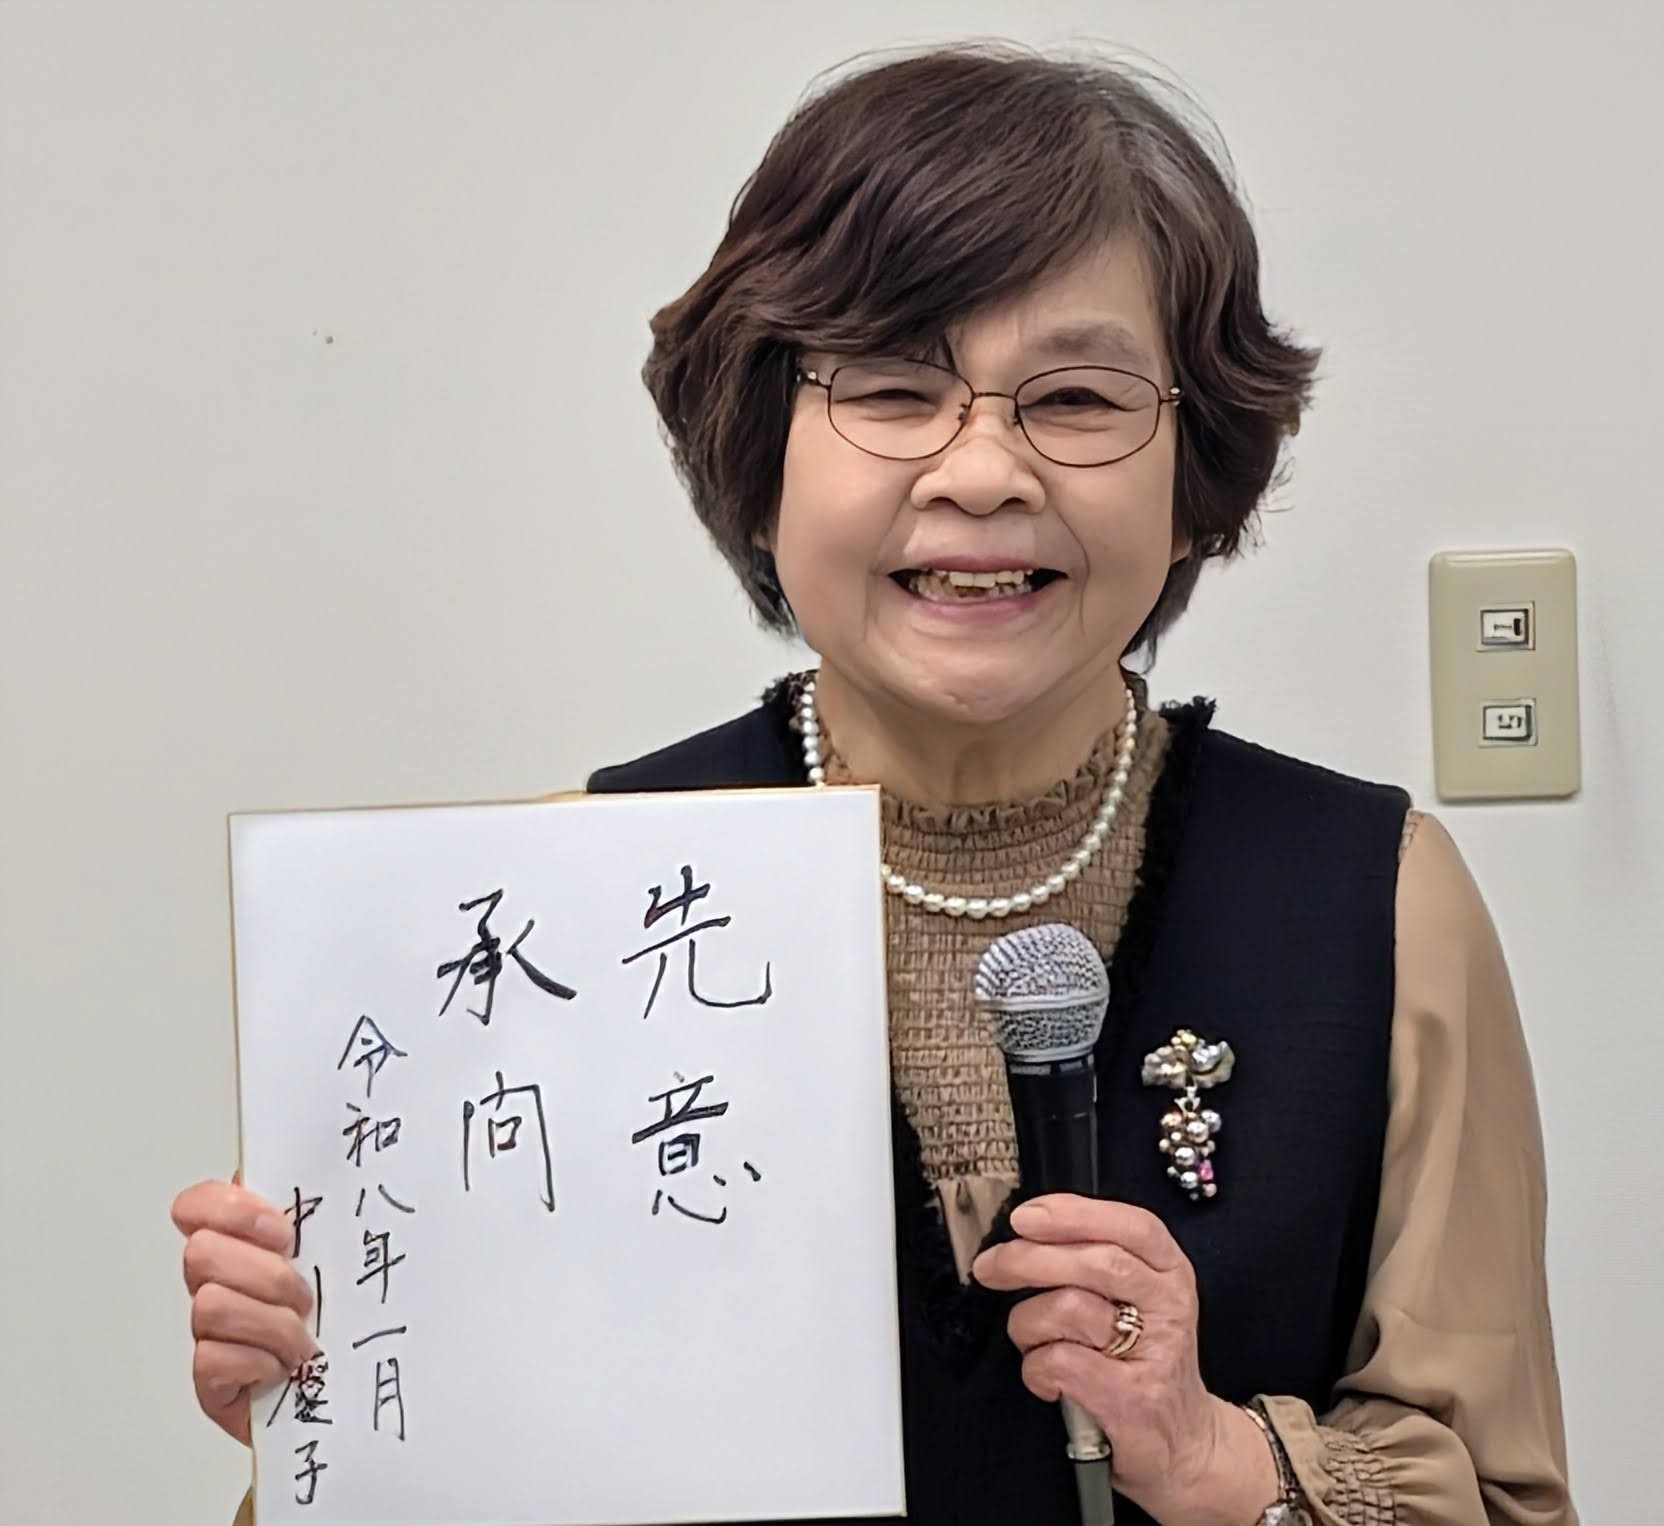 先意
承問
令和八年一月
中川慶子